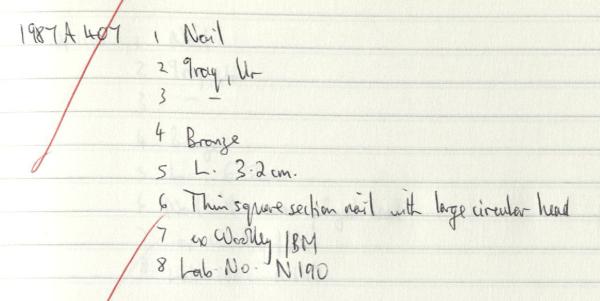 1987 A 407 1 Nail
2 Iraq, Ur
3 —
4 Bronze
5 L. 3.2 cm.
6 Thin square section nail with large circular head
7 ex Woolley / BM
8 Lab. No. N190